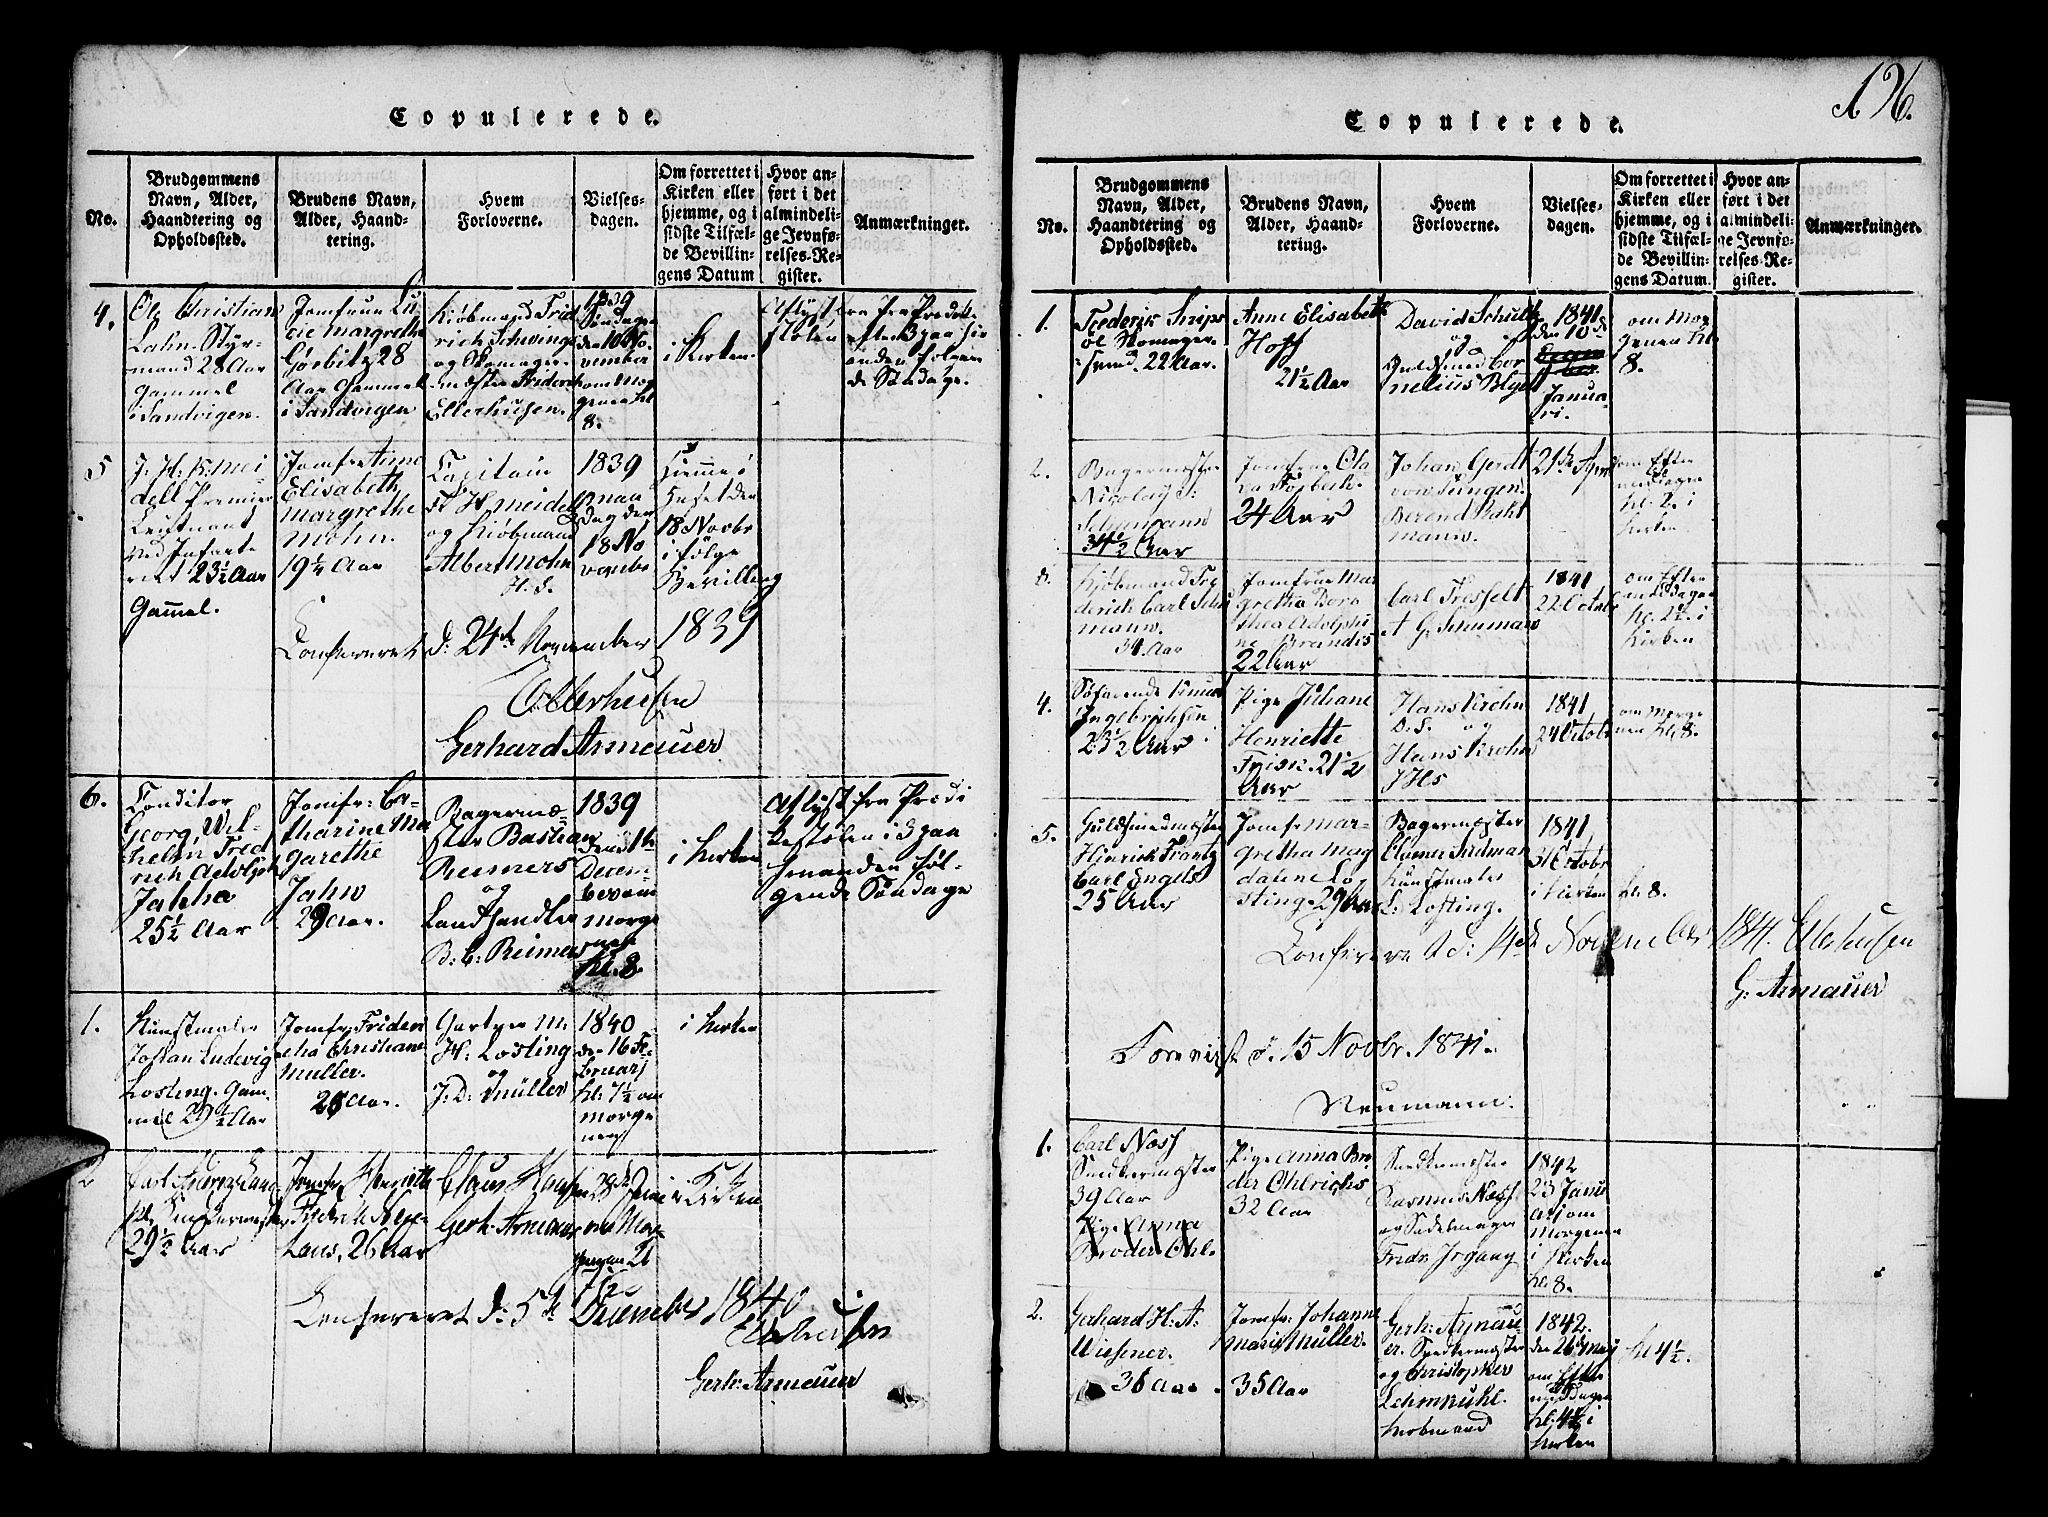 196.
Copulerede.
No.
Brudgommens
Navn, Alder,
Haandtering og
Opholdssted.
Brudens Navn,
Alder, Haand-
tering.
Hvem
Forloverne.
Vielses-
dagen.
Om forrettet i
Kirken eller
hjemme, og i
sidste Tilfæl-
de Bevillin-
gens Datum
Hvor an-
ført i det
almindeli-
ge Jevnfø-
relses-Re-
gister.
Anmærkninger.
4.
Ole Christian
Lahn Styr-
mand 28 Aar
Gammel
i Sandvigen.
Jomfrue Lu-
cie Margrethe
Görbitz 28
Aar Gammel
i Sandvigen
Kiöbmand Frid
rich Schwings
og Skomager-
mester Friderich
Ellerhusen.
1839
Söndagen
den 10 No
vember
om Mor
genen kl
8.
i Kirken
5
J. H. K. Mei
dell Premier
Leutnant
ved Infante
riet 23½ Aar
Gammel.
Jomfr Anne
Elisabeth
Margrethe
Mohn.
19¼ Aar
Capitain
H Meidel
og Kiöbmand
Albert Mohn
H. S.
1839
Man
dag den
18 No
vembr
Hjemme i
Huset den
18 Novbr
i fölge
Bevilling
Confereret d: 24de November 1839
Ellerhusen
Gerhard Armauer
6.
Conditor
Georg Wil-
helm Fried
rich Adolph
Jahn
25½ Aar
Jomfr: Ca-
tharine Ma
garethe
Jahn
29 Aar.
Bagermæ-
ster Bastian
Reimers
og
Landhandler
B: C: Reimers
1839
Decem-
ber om
Morge
nen
kl. 8.
i kirken
Aflyst fra Prædi
kestolen i 3 paa
hinanden föl-
gende Söndage
1.
Kunstmaler
Johan Ludvig
Losting. Gam
mel 29½ Aar
Jomfr Frider
cha Christiane
Müller.
28 Aar.
Gartner M.
H: Losting
og
J. D. Müller
1840
den 16 Fe
bruarj
kl. 7½ om
Morge
nen
i kirken
2
29½ Aar
26 Aar
Claus Hansen
Gerh. Armauer
28de Juni
om Mor-
genen kl
7½
i Kirken
Confereret d: 5te December 1840
Ellerhusen
Gerh: Armauer
Copulerede.
No.
Brudgommens
Navn, Alder,
Haandtering og
Opholdssted.
Brudens Navn,
Alder, Haand-
tering.
Hvem
Forloverne.
Vielses-
dagen.
Om forrettet i
Kirken eller
hjemme, og i
sidste Tilfæl-
de Bevillin-
gens Datum.
Hvor an-
ført i det
almindeli-
ge Jevnfø-
relses-Re-
gister.
Anmærkninger.
1.
Frederik
Skomager-
svend. 22 Aar.
Anne Elisabeth
Hoff
21½ Aar
David Schultz
og
Guldsmed Cor
nelius Blytt
1841
den 10de
Janua-
ri.
om Mor
genen kl.
8.
2.
Bagermester
Nicolay S:
Schumann
34½ Aar
Jomfrue Cla
ra Fösbech.
24 Aar
Johan Gerdt
von Tangen.
Berend Rahl
mann.
om Efter
middagen
kl. 2. i
kirken
3.
Kjöbmand Fri
derich Carl Schu
mann.
34. Aar
Jomfrue Mar
gretha Doro
thea Adolphi
ne Brandis
22 Aar
Carl Tresselt
A G. Schuman
1841
22 Octobr
om Efter
middagen
kl. 2. i
kirken
4.
Söfarende Knud
Ingebrigtsen
23½ Aar
Pige Juliane
Henriette
Frisk. 21½
Aar
Hans Krohn
D. S. og
Hans Krohn
J Hs
1841
24 Octobr
om Morge
nen kl. 8.
5.
Guldsmedmester
Hinrick Frantz
Carl Engels
25 Aar
Jomfr Mar-
gretha Mag
dalene Lo
sting. 29 Aar
Bagermester
Clamer Kulman
Kunstmaler
L. Losting.
1841
31 Octobr
i Kirken
kl. 8.
Confereret d: 14de November 1841. Ellerhusen
G: Armauer
Forevist d. 15 Novbr. 1841.
Neumann.
1.
Carl Næss
Snedkermester
39 Aar
Pige Anna
Broder Ohl.
Pige Anna Bro
der Ohlrichs
32 Aar
Snedkermester
Rasmus Næss
og Sadelmager
Fridr. Irgang
1842
23 Janu
ari om
Morgenen
i Kirken
kl. 8.
2.
Gerhard H. A.
Wiesener.
36 Aar.
Jomfr: Johanne
Marie Müller.
35 Aar
Gerh: Armau-
er. Snedkermester
og Christopher
Lehmkuhl.
kiöbmand
1842.
den 26de Maj
om Efter
middagen
kl. 4½ i
kirken
kl 4½.